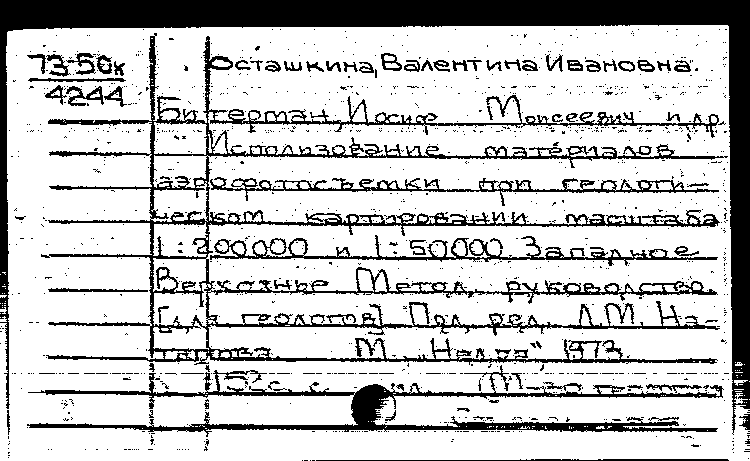 73-50к
4244
Осташкина, Валентина Ивановна.
Битерман, Иосиф Моисеевич и др.
Использование материалов
аэрофотосъемки при геологи-
ческом картировании масштаба
1:200000 и 1:50000. Западное
Верхоянье Метод. руководство.
[для геологов] Под. ред. Л.М. На-
тапова. М. „Недра", 1973.
152 с. с ил. (М-во геологии